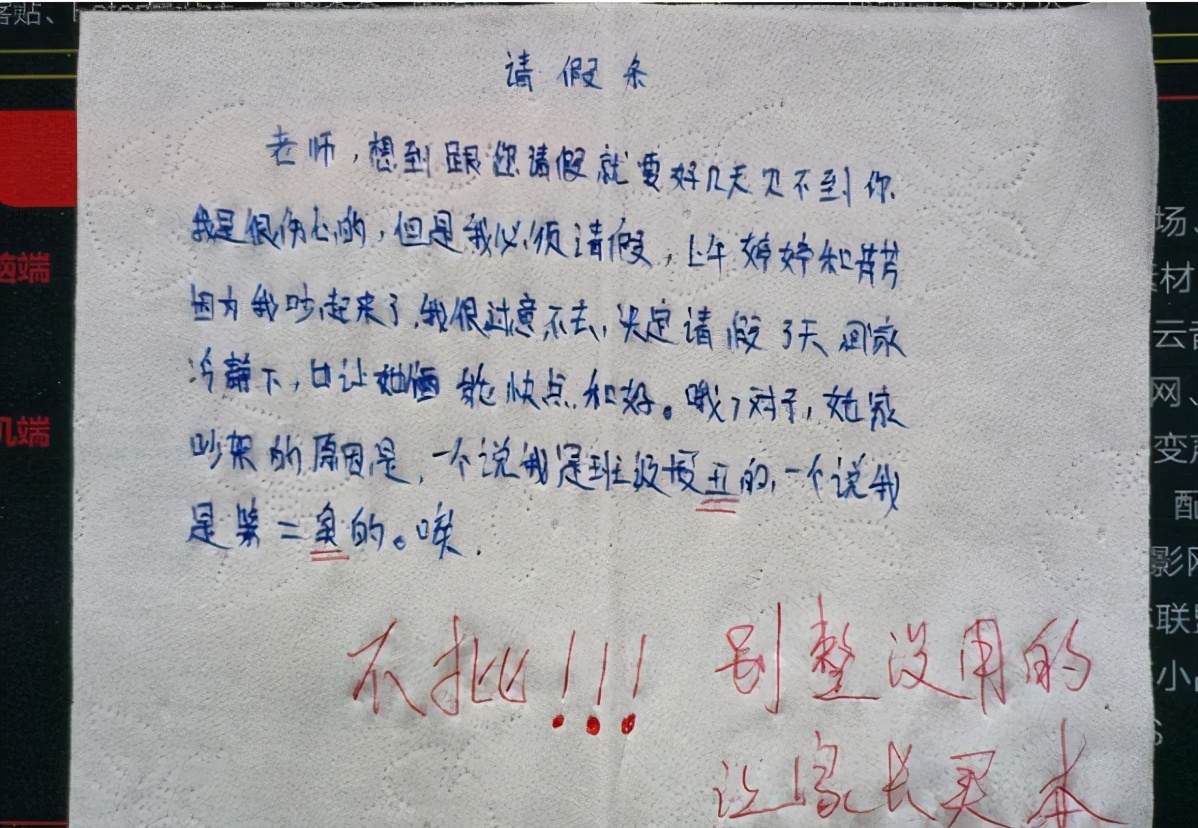 请假条
老师，想到跟您请假就要好几天见不到你
我是很伤心的，但是我必须请假，上午婷婷和芳芳
因为我吵起来了，我很过意不去，决定请假3天回家
冷静下，也让她俩能快点和好。哦，对了，她家
吵架的原因是，一个说我是班级最丑的，一个说我
是第二丑的。唉，
不批！！！
别整没用的
让家长买本
脑端
机端
场、
素材
云音
网、
变形
配
影网
联盟
小